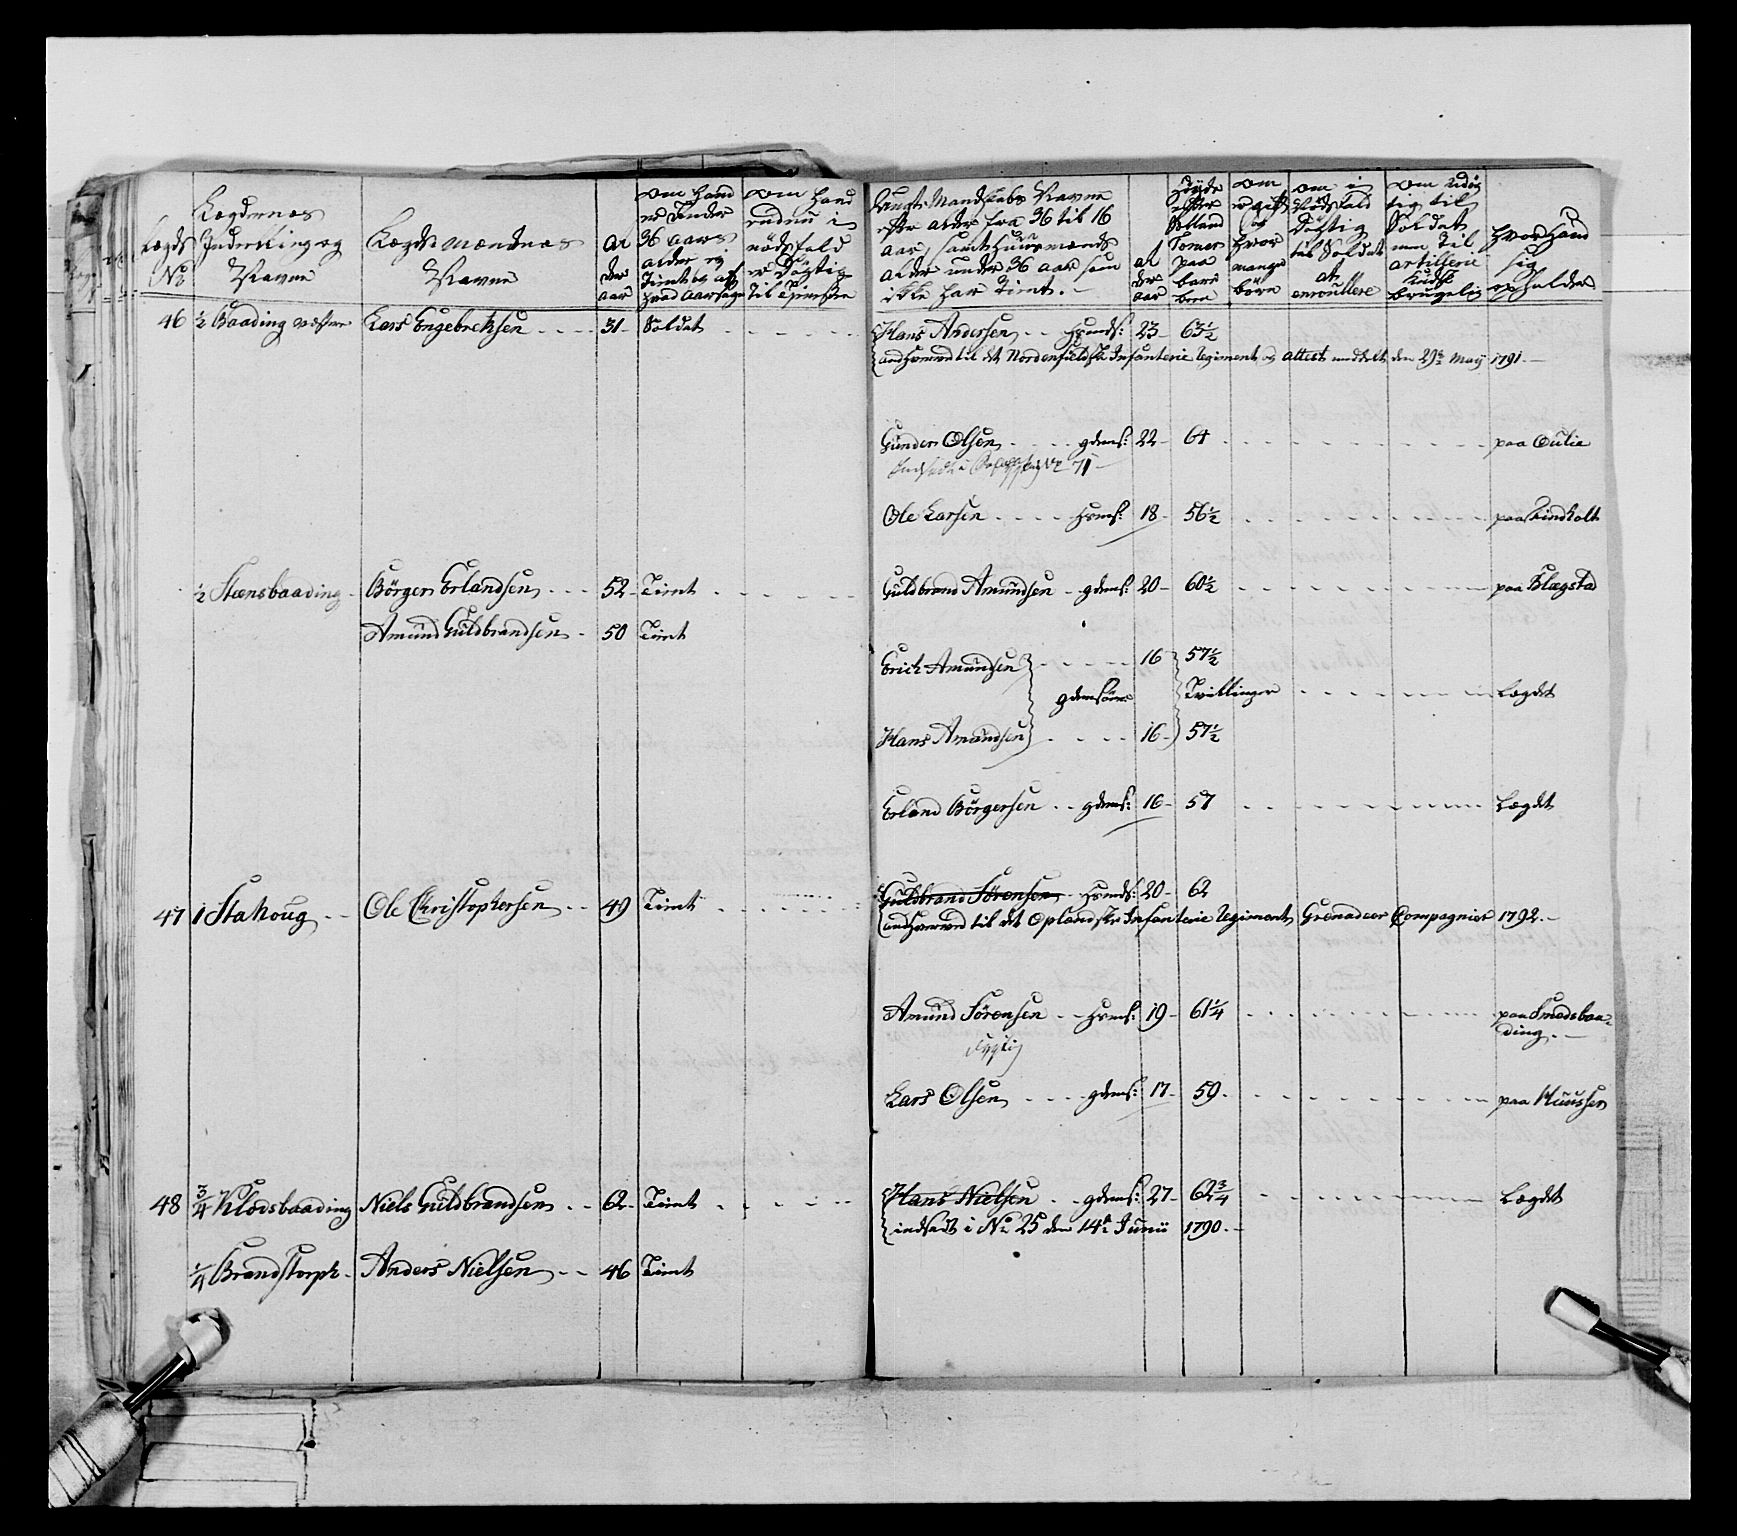 Lægds No
Lægdernes Inddeeling og Navne
Lægds Mændenes Navne
Alder aar
om hand er under 36 aars alder og Tient og af hvad aarsage
om hand endnu i nödsfald er Dögtig til Tieneste
Unge Mandskabs Navne efter alder fra 36 til 16 aar, samt huusmænds alder under 36 aar som ikke har Tient.
Alder aar
Höyde efter Sælland Tomer paa bare been
om og gift og hvor mange börn
om i Nödsfald Dögtig til Soldat at enroullere
om udögtig til Soldat men til artillerie Kudsk brugelig
hvor hand sig opholder
46 ½ Baading vestre Lars Engebretsen 31 Soldat Hans Andersen husmds: 23 63½
andhvervet til det Nordenfieldske Infanterie Regiment og attest meddelt den 29de May 1791.
Gunder Olsen gdms: 22 64 paa Oulie
No 71
Ole Larsen hsms: 18 56½ paa Lindholt
½ Stensbaading Börger Erlandsen 52 Tient Guldbrand Amundsen gdms: 20 60½ paa Blægstad
Amund Guldbrandsen 50 Tient
Erich Amundsen 16 57½
gdmsöner Tvillinger Lægdet
Hans Amundsen 16 57½
Erland Börgersen gdms: 16 57 Lægdet
47 1 Stahoug Ole Christophersen 49 Tient Guldbrand Sörensen husmds: 20 62
andhvervet til det Oplandske Infanterie Regiments Grenadeer Compagnier 1792.
Amund Sörensen hsms: 19 61¼ paa Smedsbaading.
Lars Olsen gdms: 17 59 paa Huuser
48 ¾ Klodsbaading Niels Guldbrandsen 62 Tient Hans Nielsen gdms: 27 62¾ Lægdet
indsadt i No 25 den 14de Junii 1790.
¼ Brandstorph Anders Nielsen 46 Tient